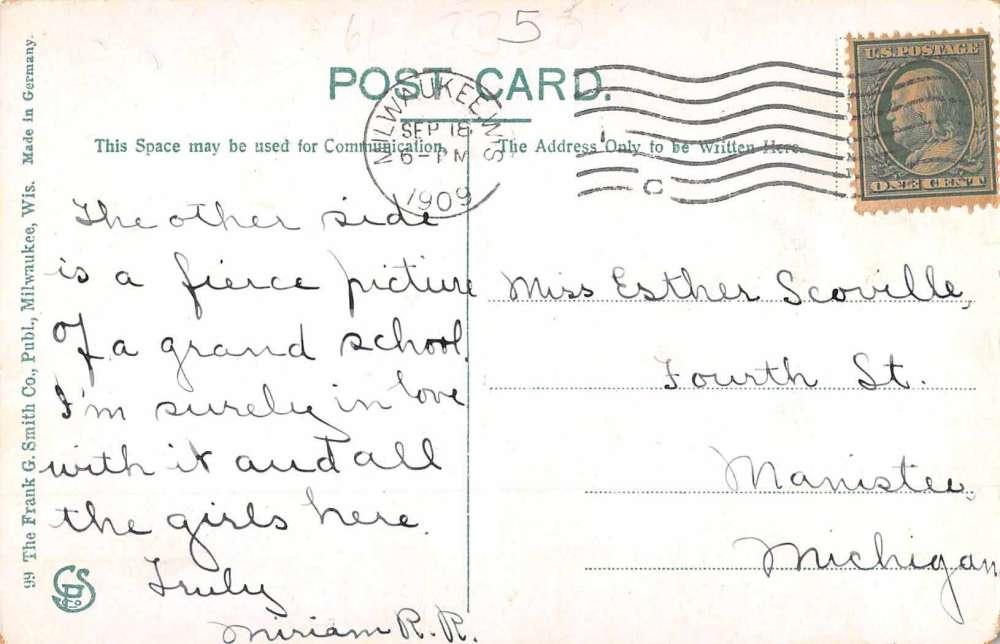 5
POST CARD.
MILWAUKEE, WIS
SEP 18
6-PM
1909
C
U.S. POSTAGE
ONE CENT
This Space may be used for Communication,
The Address Only to be Written Here.
The other side
is a fierce picture
of a grand school.
I'm surely in love
with it and all
the girls here.
Truly
Miriam R. R.
Miss Esther Scoville,
Fourth St.
Manistee,
Michigan
99 The Frank G. Smith Co., Publ., Milwaukee, Wis. Made in Germany.